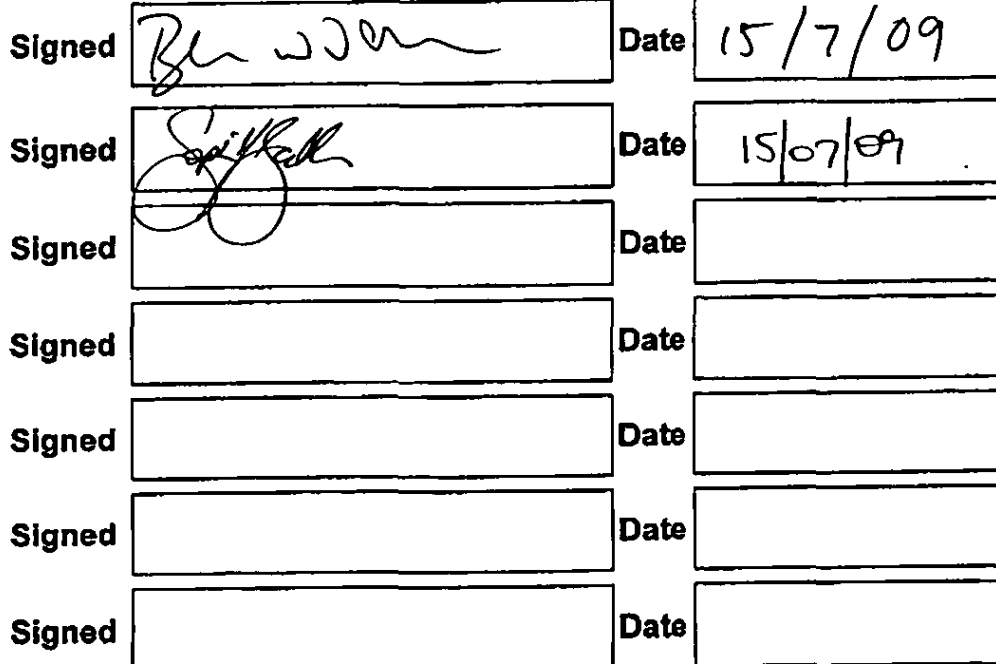 Signed Date 15/7/09
Signed Date 15/07/09
Signed Date
Signed Date
Signed Date
Signed Date
Signed Date